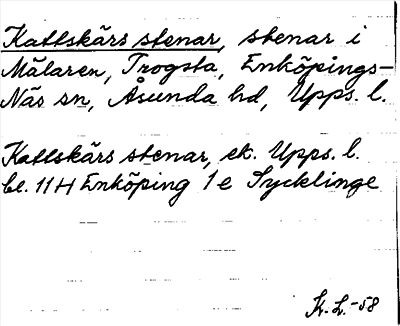 Kattskärs stenar, stenar i
Mälaren, Trogsta, Enköpings-
Näs sn, Åsunda hd, Upps. l.
Kattskärs stenar, ek. Upps. l.
bl. 11H Enköping 1e Sycklinge
St. L. -58